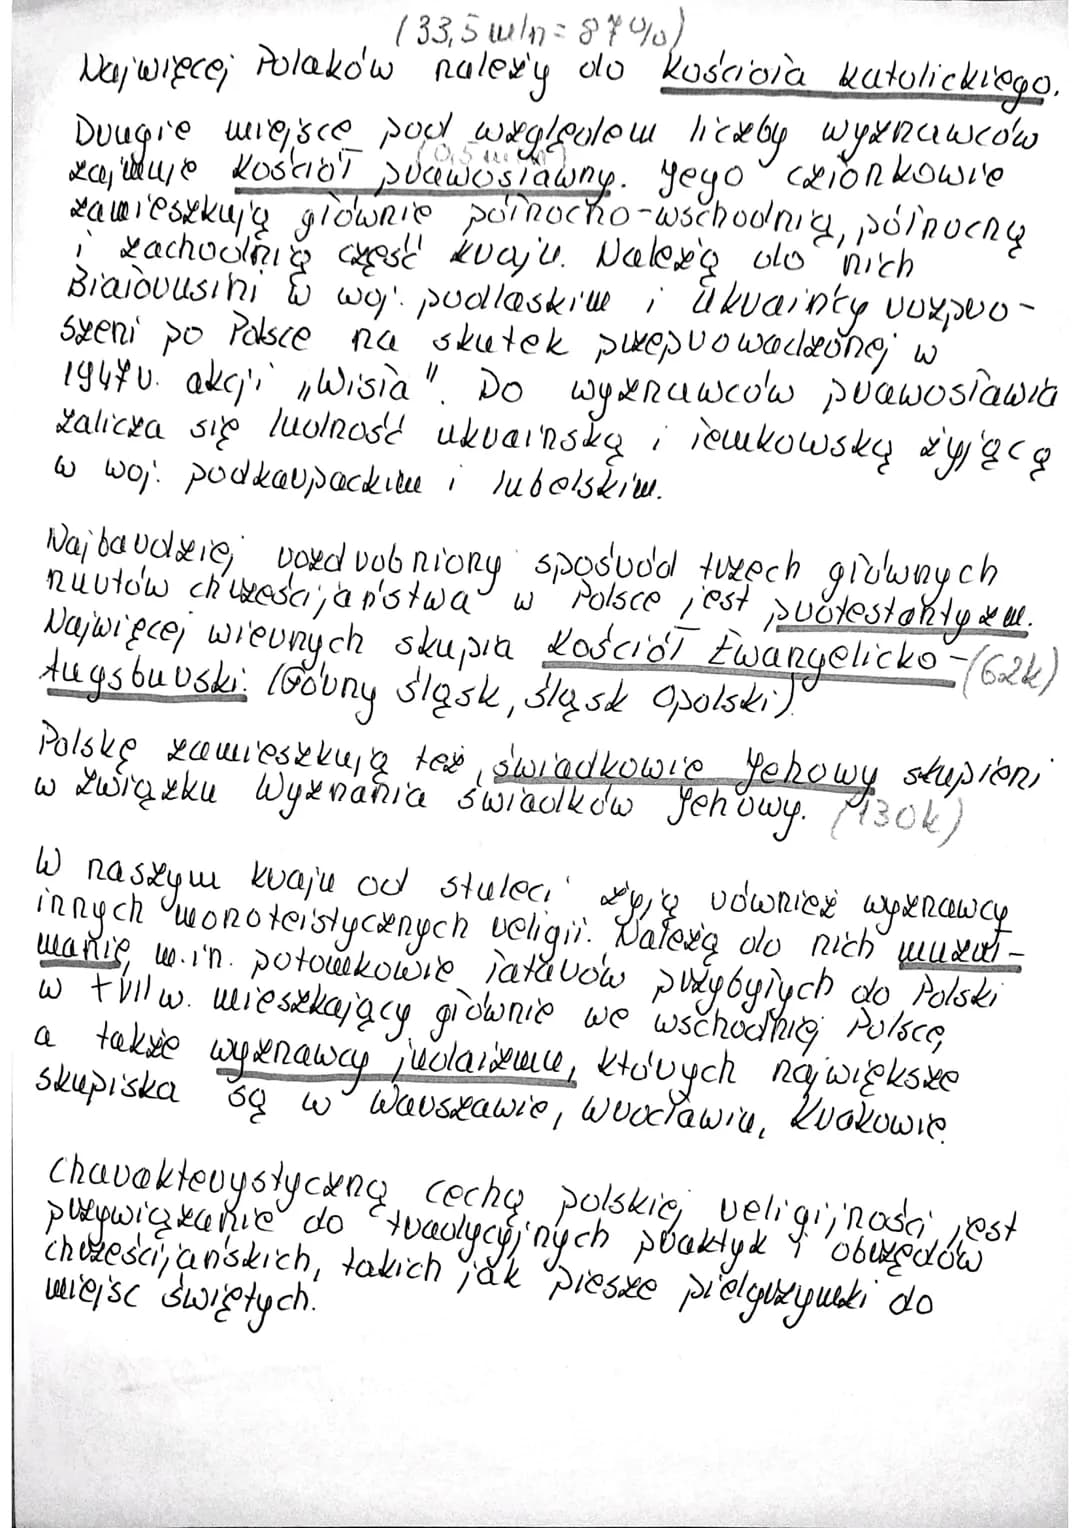 (33,5 mln = 87%)
Najwięcej Polaków należy do Kościoła katolickiego.
Drugie miejsce pod względem liczby wyznawców
(0,5 mln)
zajmuje Kościół prawosławny. Jego członkowie
zamieszkują głównie północno-wschodnią, północną
i zachodnią część kraju. Należą do nich
Białorusini w woj. podlaskim i Ukraińcy rozpro-
szeni po Polsce na skutek przeprowadzonej w
1947 r. akcji „Wisła". Do wyznawców prawosławia
zalicza się ludność ukraińską i łemkowską żyjącą
w woj. podkarpackim i lubelskim.
Najbardziej rozdrobniony spośród trzech głównych
nurtów chrześcijaństwa w Polsce jest protestantyzm.
Najwięcej wiernych skupia Kościół Ewangelicko-(62k)
Augsburski. (Górny Śląsk, Śląsk Opolski).
Polskę zamieszkują też świadkowie Jehowy skupieni
w Związku Wyznania Świadków Jehowy. (130k)
W naszym kraju od stuleci żyją również wyznawcy
innych monoteistycznych religii. Należą do nich muzuł-
manie, m.in. potomkowie Tatarów przybyłych do Polski
w XVII w. mieszkający głównie we wschodniej Polsce,
a także wyznawcy judaizmu, których największe
skupiska są w Warszawie, Wrocławiu, Krakowie.
Charakterystyczną cechą polskiej religijności jest
przywiązanie do tradycyjnych praktyk i obrzędów
chrześcijańskich, takich jak piesze pielgrzymki do
miejsc świętych.